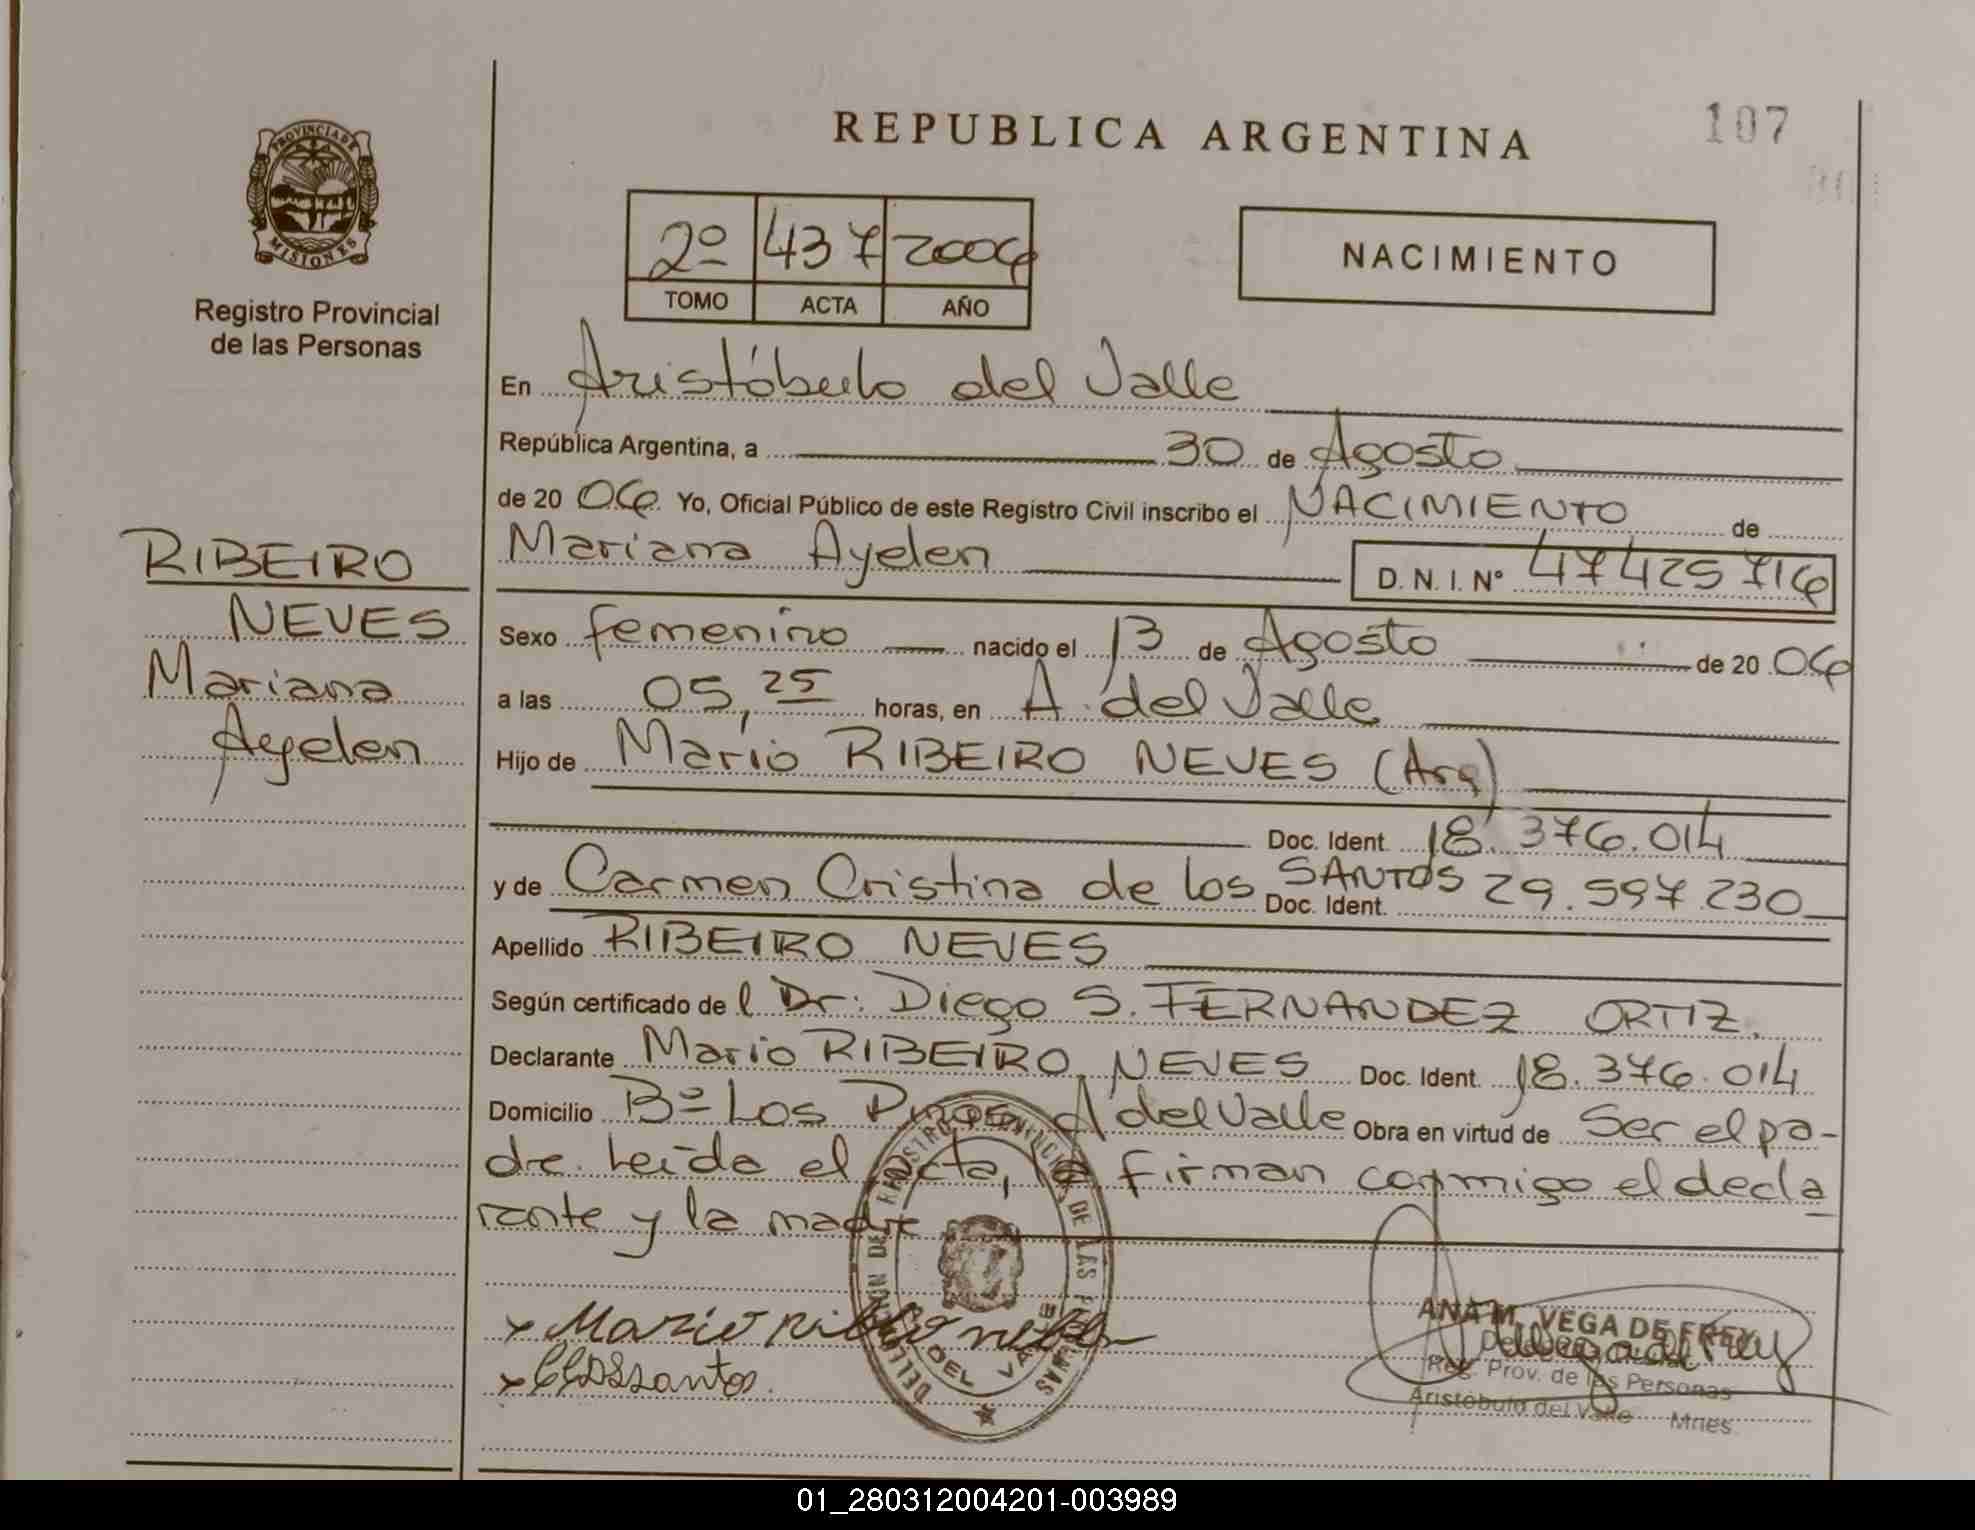 PROVINCIA DE
MISIONES
Registro Provincial
de las Personas
RIBEIRO
NEVES
Mariana
Ayelen
REPUBLICA ARGENTINA
107
2º 437 2006
TOMO ACTA AÑO
NACIMIENTO
En Aristóbulo del Valle
República Argentina, a 30 de Agosto
de 20 06 Yo, Oficial Público de este Registro Civil inscribo el NACIMIENTO de
Mariana Ayelen D. N. I. Nº 47425716
Sexo femenino nacido el 13 de Agosto de 20 06
a las 05,25 horas, en A. del Valle
Hijo de Mario RIBEIRO NEVES (Arg)
Doc. Ident. 18.376.014
y de Carmen Cristina de los SANTOS Doc. Ident. 29.597.230
Apellido RIBEIRO NEVES
Según certificado de l Dr: Diego S. FERNANDEZ ORTIZ.
Declarante Mario RIBEIRO NEVES Doc. Ident. 18.376.014
Domicilio Bº Los Pinos A del Valle Obra en virtud de Ser el pa-
dre. Leída el acta, la firman conmigo el decla
rante y la madre
x Mario
x CCDSSantos.
ANA M. VEGA DE FREY
Reg. Prov. de las Personas
Aristóbulo del Valle Mnes.
01_280312004201-003989